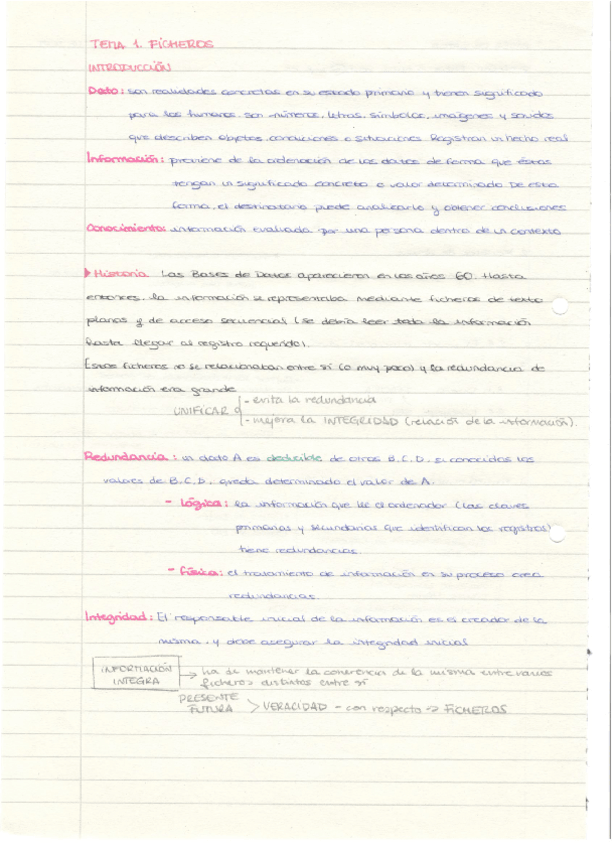 TEMA 1. FICHEROS
INTRODUCCIÓN
Dato: son realidades concretas en su estado primario y tienen significado
para los humanos. son números, letras, símbolos, imágenes y sonidos
que describen objetos, condiciones o situaciones. Registran un hecho real
Información: proviene de la ordenación de los datos de forma que éstos
tengan un significado concreto o valor determinado. De esta
forma, el destinatario puede analizarlo y obtener conclusiones
Conocimiento: información evaluada por una persona dentro de un contexto
▶ Historia. Las Bases de Datos aparecieron en los años 60. Hasta
entonces, la información se representaba mediante ficheros de texto
planos y de acceso secuencial (se debía leer toda la información
hasta llegar al registro requerido).
Estos ficheros no se relacionaban entre sí (o muy poco) y la redundancia de
información era grande
UNIFICAR
- evita la redundancia
- mejora la INTEGRIDAD (relación de la información).
Redundancia: un dato A es deducible de otros B, C, D, si conocidos los
valores de B, C, D, queda determinado el valor de A.
- Lógica: la información que lee el ordenador (las claves
primarias y secundarias que identifican los registros)
tiene redundancias.
- Física: el tratamiento de información en su proceso crea
redundancias.
Integridad: El responsable inicial de la información es el creador de la
misma, y debe asegurar la integridad inicial
INFORMACIÓN INTEGRA → ha de mantener la coherencia de la misma entre varios
ficheros distintos entre sí
PRESENTE
FUTURA > VERACIDAD - con respecto → FICHEROS